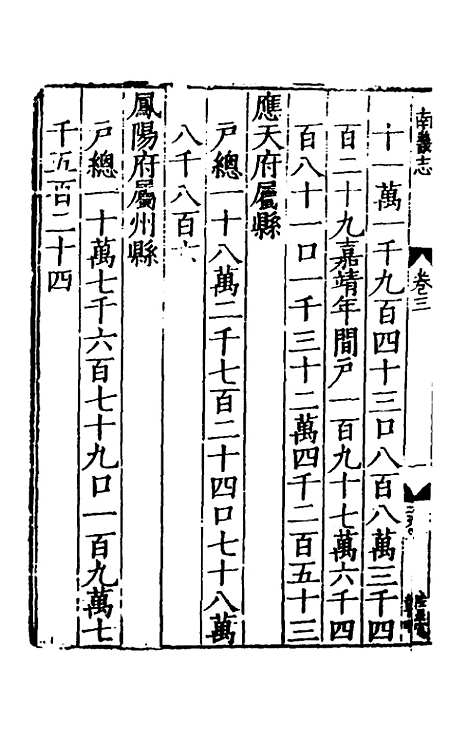 南畿志
卷三
十一萬一千九百四十三口八百八萬三千四
百二十九嘉靖年間戶一百九十七萬六千四
百八十一口一千三十二萬四千二百五十三
應天府屬縣
戶總一十八萬二千七百二十四口七十八萬
八千八百六
鳳陽府屬州縣
戶總一十萬七千六百七十九口一百九萬七
千五百二十四